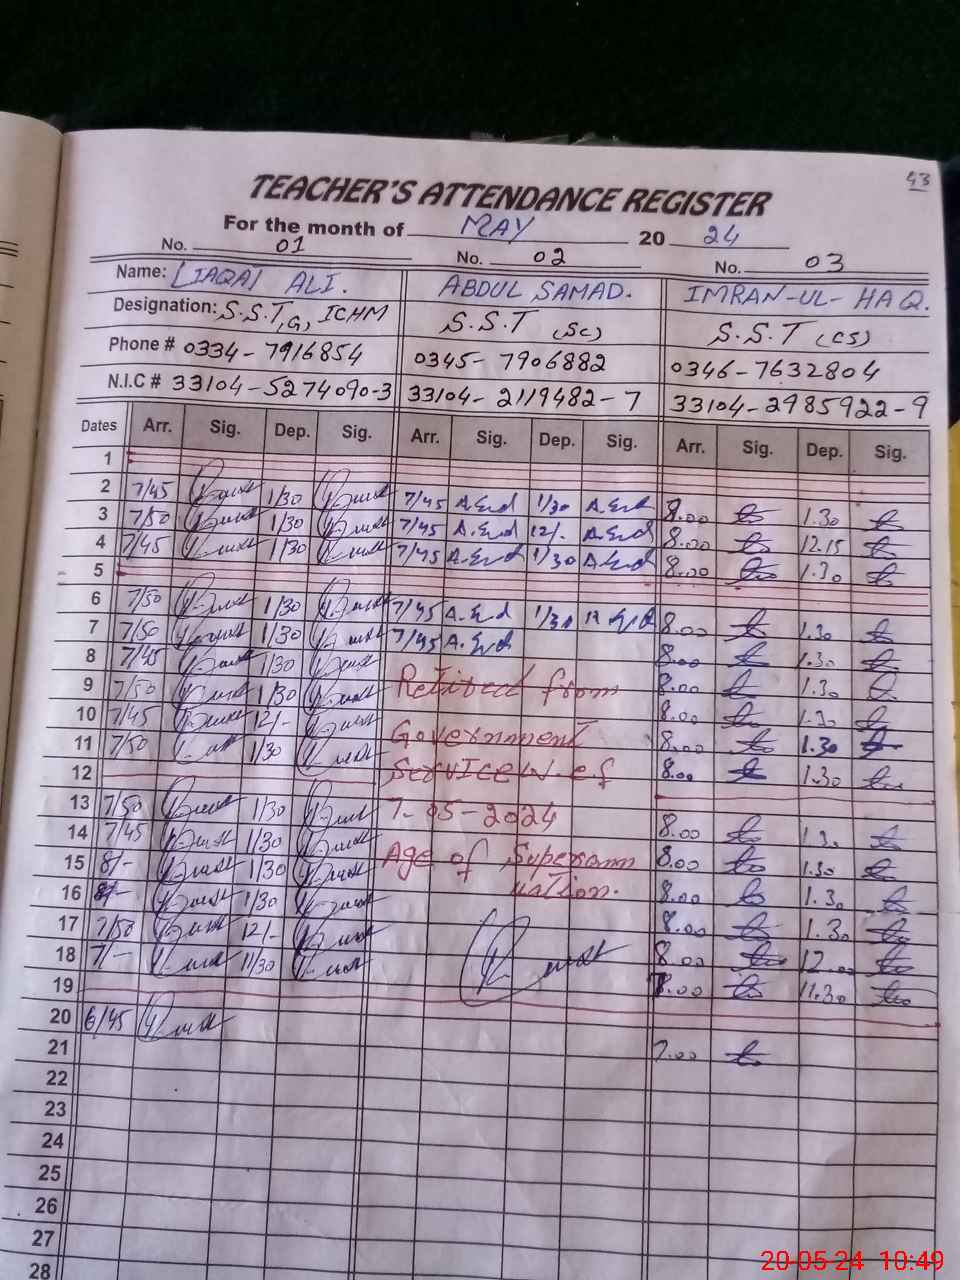 43
TEACHER'S ATTENDANCE REGISTER
For the month of MAY 2024
No. 01 No. 02 No. 03
Name: LIAQAT ALI. ABDUL SAMAD. IMRAN-UL-HAQ.
Designation: S.S.T, G, ICHM S.S.T (SC) S.S.T (CS)
Phone # 0334-7916854 0345-7906882 0346-7632804
N.I.C # 33104-5274090-3 33104-2119482-7 33104-2985922-9
Dates Arr. Sig. Dep. Sig. Arr. Sig. Dep. Sig. Arr. Sig. Dep. Sig.
1
2 7/45 1/30 7/45 1/30 8.00 1.30
3 7/50 1/30 7/45 12/. 8.00 12.15
4 7/45 1/30 7/45 1/30 8.00 1.30
5
6 7/50 1/30 7/45 1/30 8.00 1.30
7 7/50 1/30 7/45 8.00 1.30
8 7/45 1/30 8.00 1.30
9 7/50 1/30 Retired from 8.00 1.30
10 7/45 12/- Government 8.00 1.30
11 7/50 1/30 Service w.e.f 8.00 1.30
12
13 7/50 1/30 7-05-2024 8.00 1.30
14 7/45 1/30 Age of Superann 8.00 1.30
15 8/- 1/30 uation. 8.00 1.30
16 8/- 1/30 8.00 1.30
17 7/50 12/- 8.00 12.00
18 7/- 11/30 8.00 11.30
19
20 6/45 7.00
21
22
23
24
25
26
27
28
20-05-24 10:49